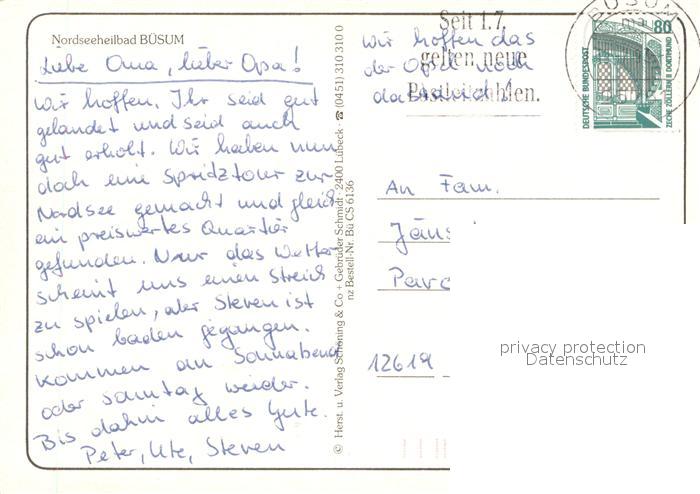 Nordseeheilbad BÜSUM
Liebe Oma, lieber Opa!
Wir hoffen, Ihr seid gut
gelandet und seid auch
gut erholt. Wir haben nun
doch eine Spritztour zur
Nordsee gemacht und gleich
ein preiswertes Quartier
gefunden. Nur das Wetter
scheint uns einen Streich
zu spielen, aber Steven ist
schon baden gegangen.
Kommen am Sonnabend
oder sonntag wieder.
Bis dahin alles Gute.
Peter, Ute, Steven
© Herst. u. Verlag Schöning & Co + Gebrüder Schmidt · 2400 Lübeck · ☎ (0451) 310 310 0
nz Bestell-Nr. Bü CS 6136
Wir hoffen das
der Opel noch
da
Seit 1.7.
gelten neue
Postleitzahlen.
BÜSUM
80
DEUTSCHE BUNDESPOST
ZECHE ZOLLERN II DORTMUND
An Fam.
Jäns
Pare
12619
privacy protection
Datenschutz